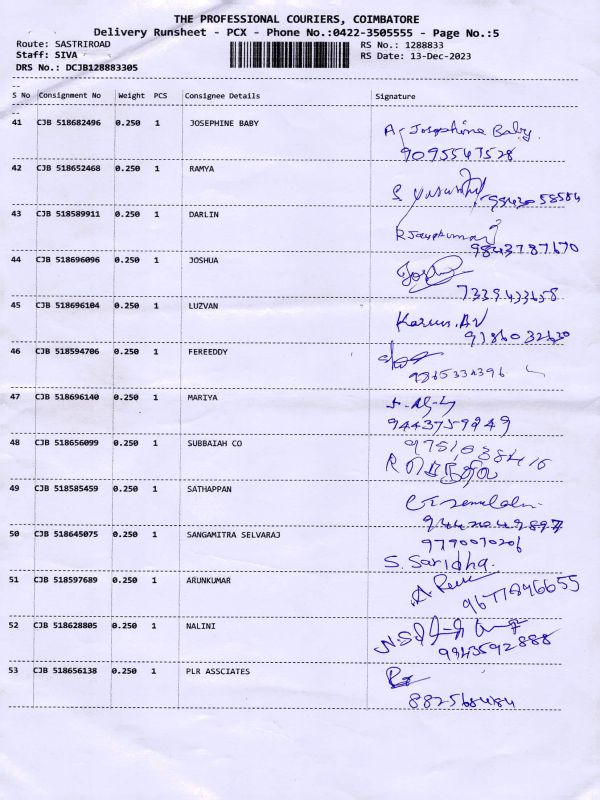 THE PROFESSIONAL COURIERS, COIMBATORE
Delivery Runsheet - PCX - Phone No.:0422-3505555 - Page No.:5
Route: SASTRIROAD
Staff: SIVA
DRS No.: DCJB128883305
RS No.: 1288833
RS Date: 13-Dec-2023
S No Consignment No Weight PCS Consignee Details Signature
41 CJB 518682496 0.250 1 JOSEPHINE BABY A. Josephine Baby.
9095547528
42 CJB 518652468 0.250 1 RAMYA
9843058584
43 CJB 518589911 0.250 1 DARLIN R Jayakumar
9843787670
44 CJB 518696096 0.250 1 JOSHUA
7339433658
45 CJB 518696104 0.250 1 LUZVAN Karun.AV
9186032630
46 CJB 518594706 0.250 1 FEREEDDY
9865334396
47 CJB 518696140 0.250 1 MARIYA
9443759949
48 CJB 518656099 0.250 1 SUBBAIAH CO
9751038416
49 CJB 518585459 0.250 1 SATHAPPAN
9442049897
50 CJB 518645075 0.250 1 SANGAMITRA SELVARAJ 9790070206
S. Saridha.
51 CJB 518597689 0.250 1 ARUNKUMAR
9677846655
52 CJB 518628805 0.250 1 NALINI
9943592888
53 CJB 518656138 0.250 1 PLR ASSCIATES